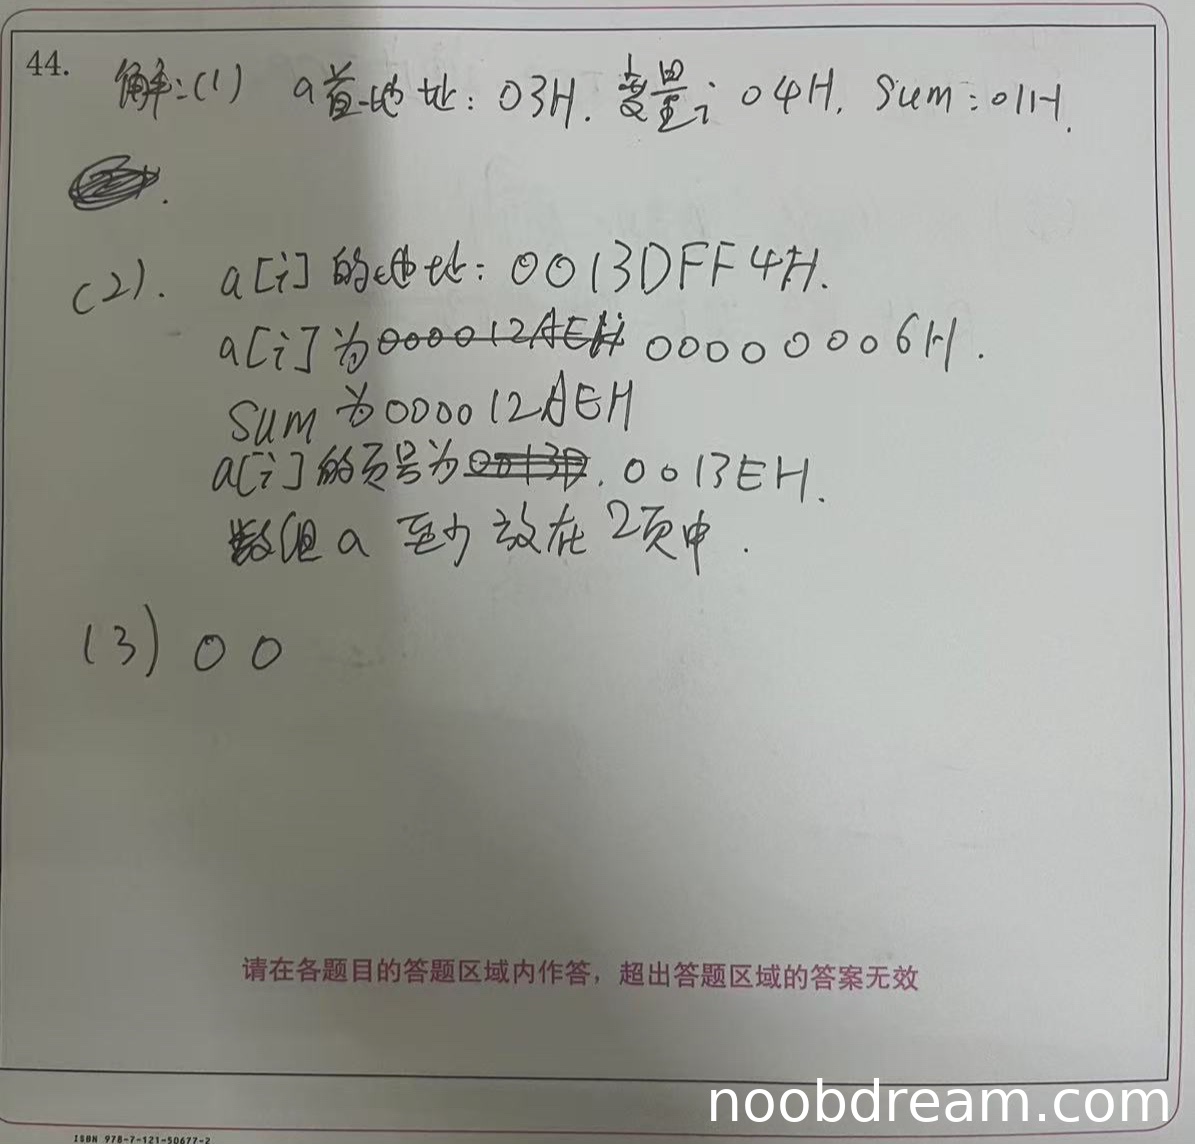 44. 解:(1) a首地址: 03H. 变量i 04H. Sum:01H.
(2). a[i]的地址: 0013DFF4H.
a[i]为000012AEH 00000006H.
Sum为000012AEH
a[i]的页号为0013D. 0013EH.
数组a 至少放在2页中.
(3) 00
请在各题目的答题区域内作答，超出答题区域的答案无效
noobdream.com
ISBN 978-7-121-50677-2